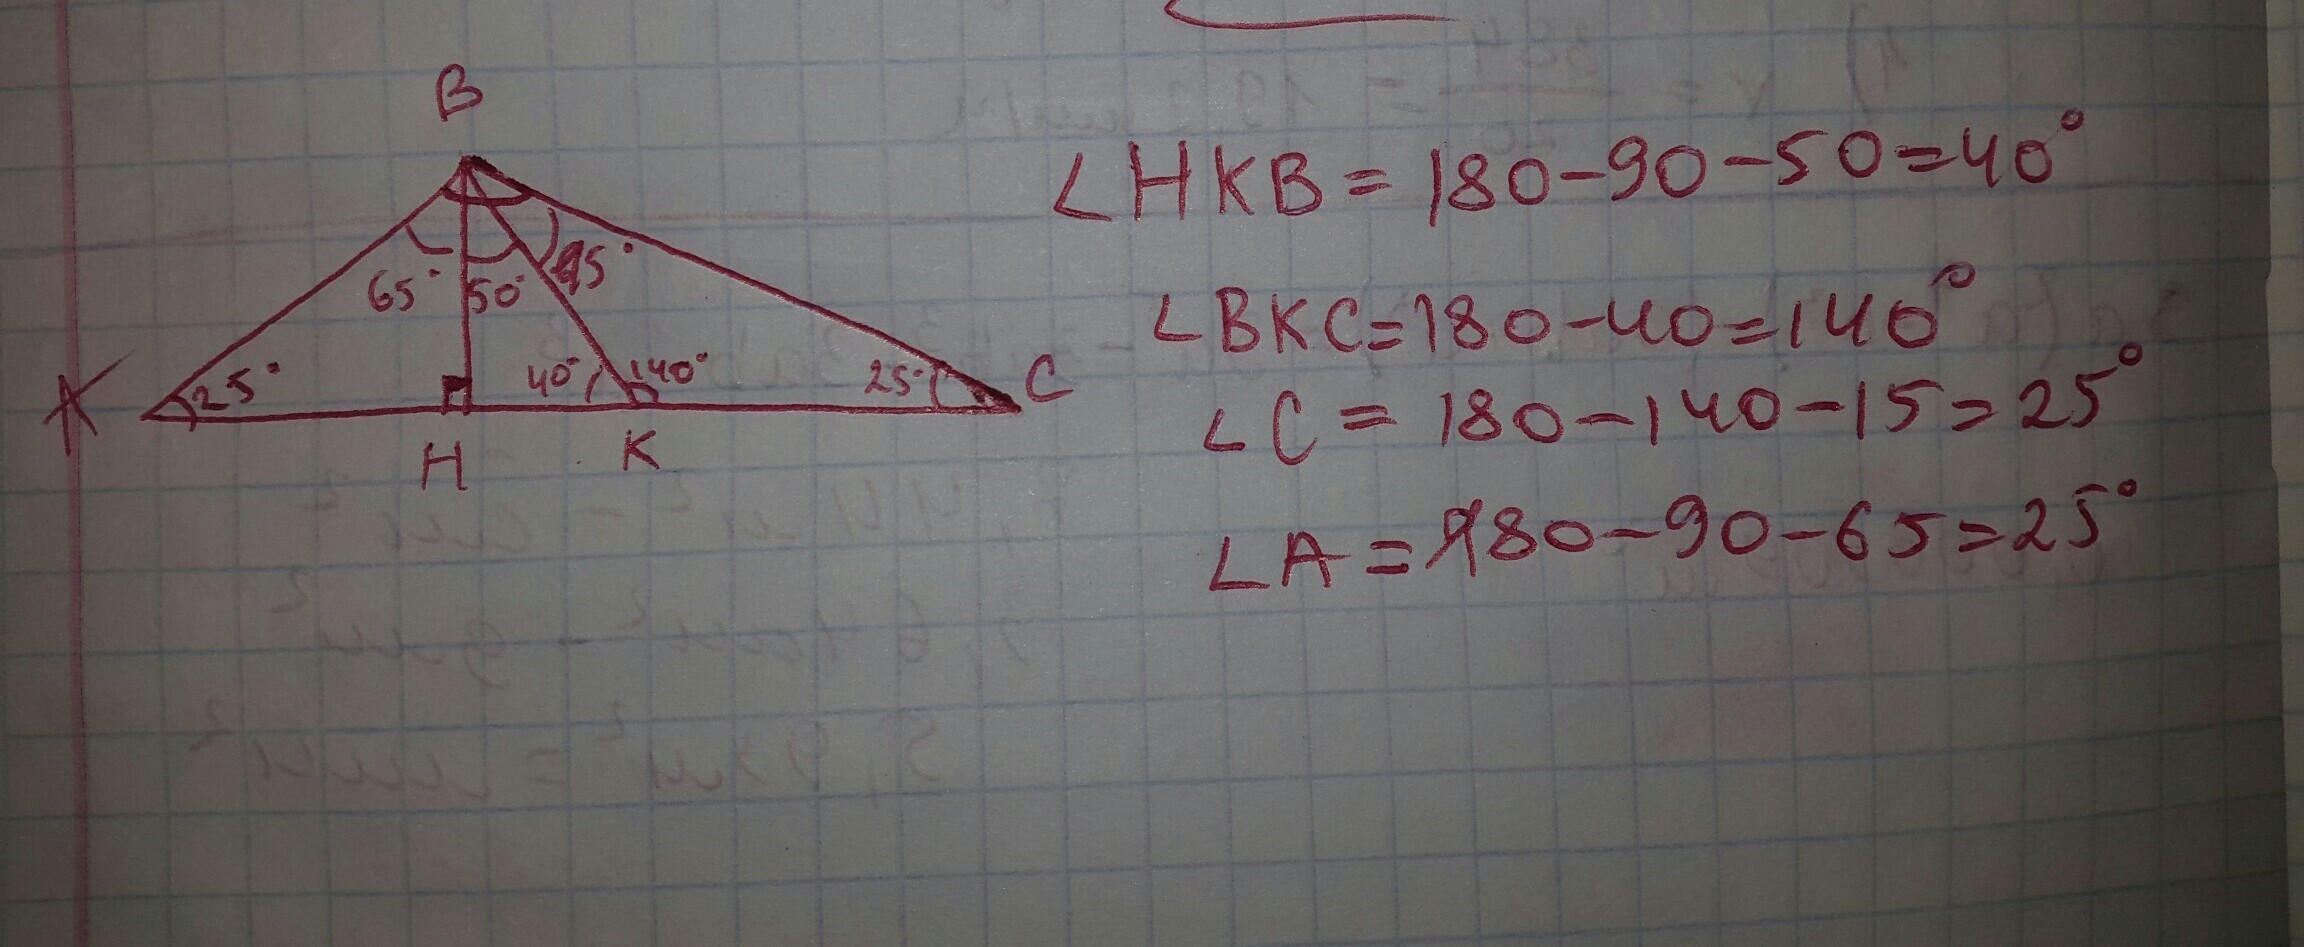 B
65° 50° 15°
A 25° 40° 140° 25° C
H K
∠HKB = 180-90-50=40°
∠BKC=180-40=140°
∠C = 180-140-15=25°
∠A = 180-90-65=25°